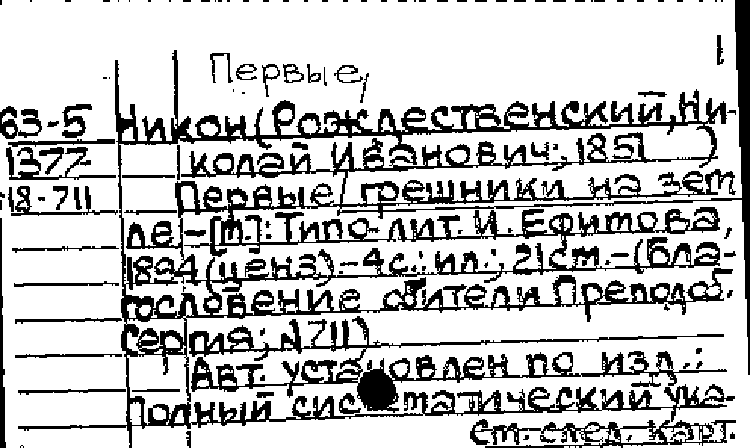 1
Первые,
63-5 Никон (Рождественский, Ни-
1377 колай Иванович; 1851 )
18-711 Первые/грешники на зем
ле. - [М.]: Типо-лит. И. Ефимова,
1894 (цена). - 4 с.: ил.; 21 см. - (Бла-
гословение обители Преподоб.
Сергия; №711)
Авт. установлен по изд.:
Полный систематический ука-
См. след. карт.